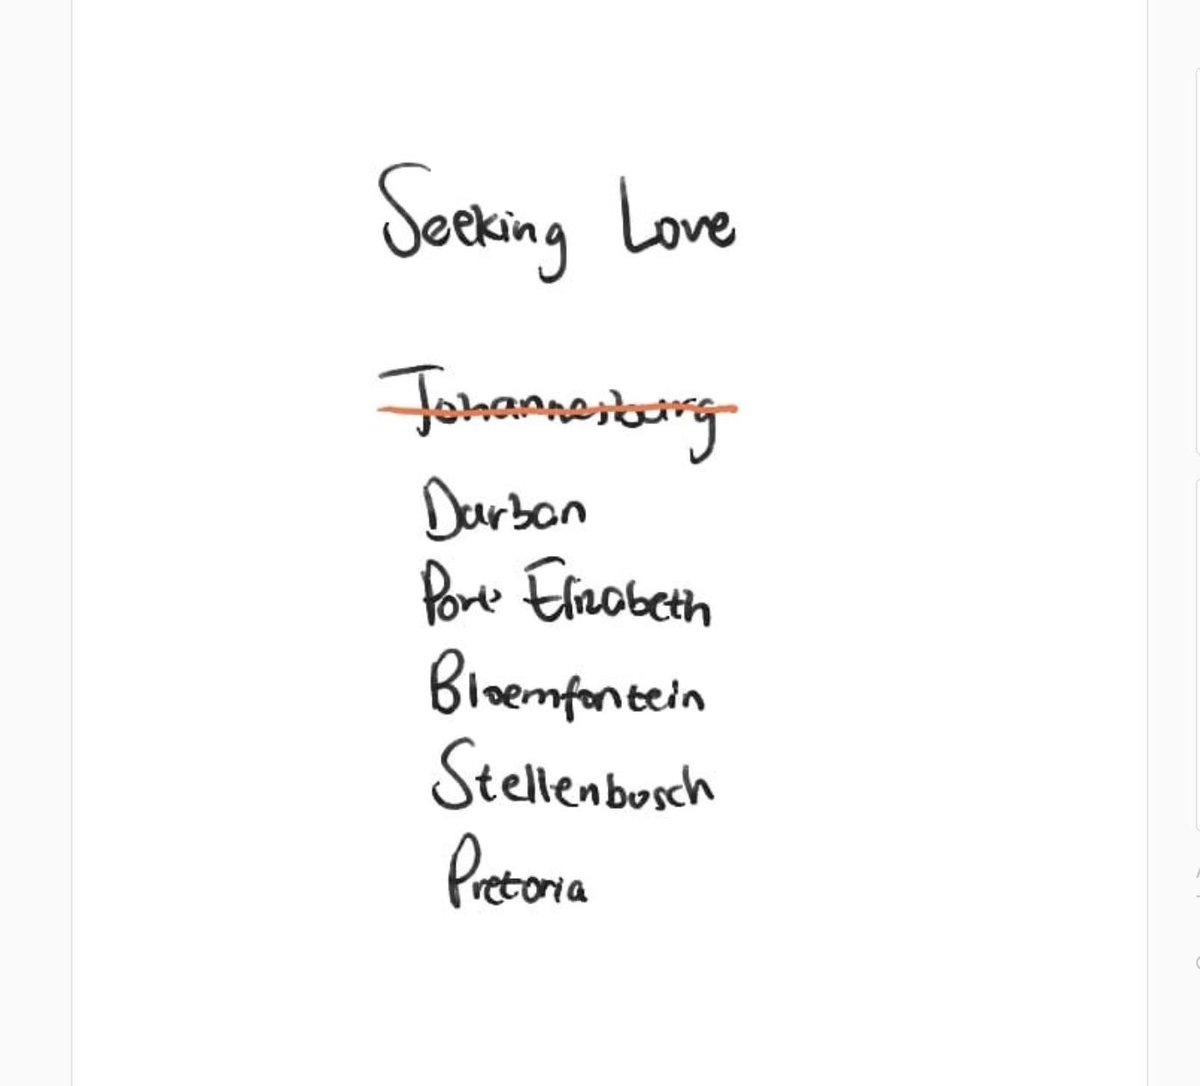 Seeking Love
Johannesburg
Durban
Port Elizabeth
Bloemfontein
Stellenbosch
Pretoria